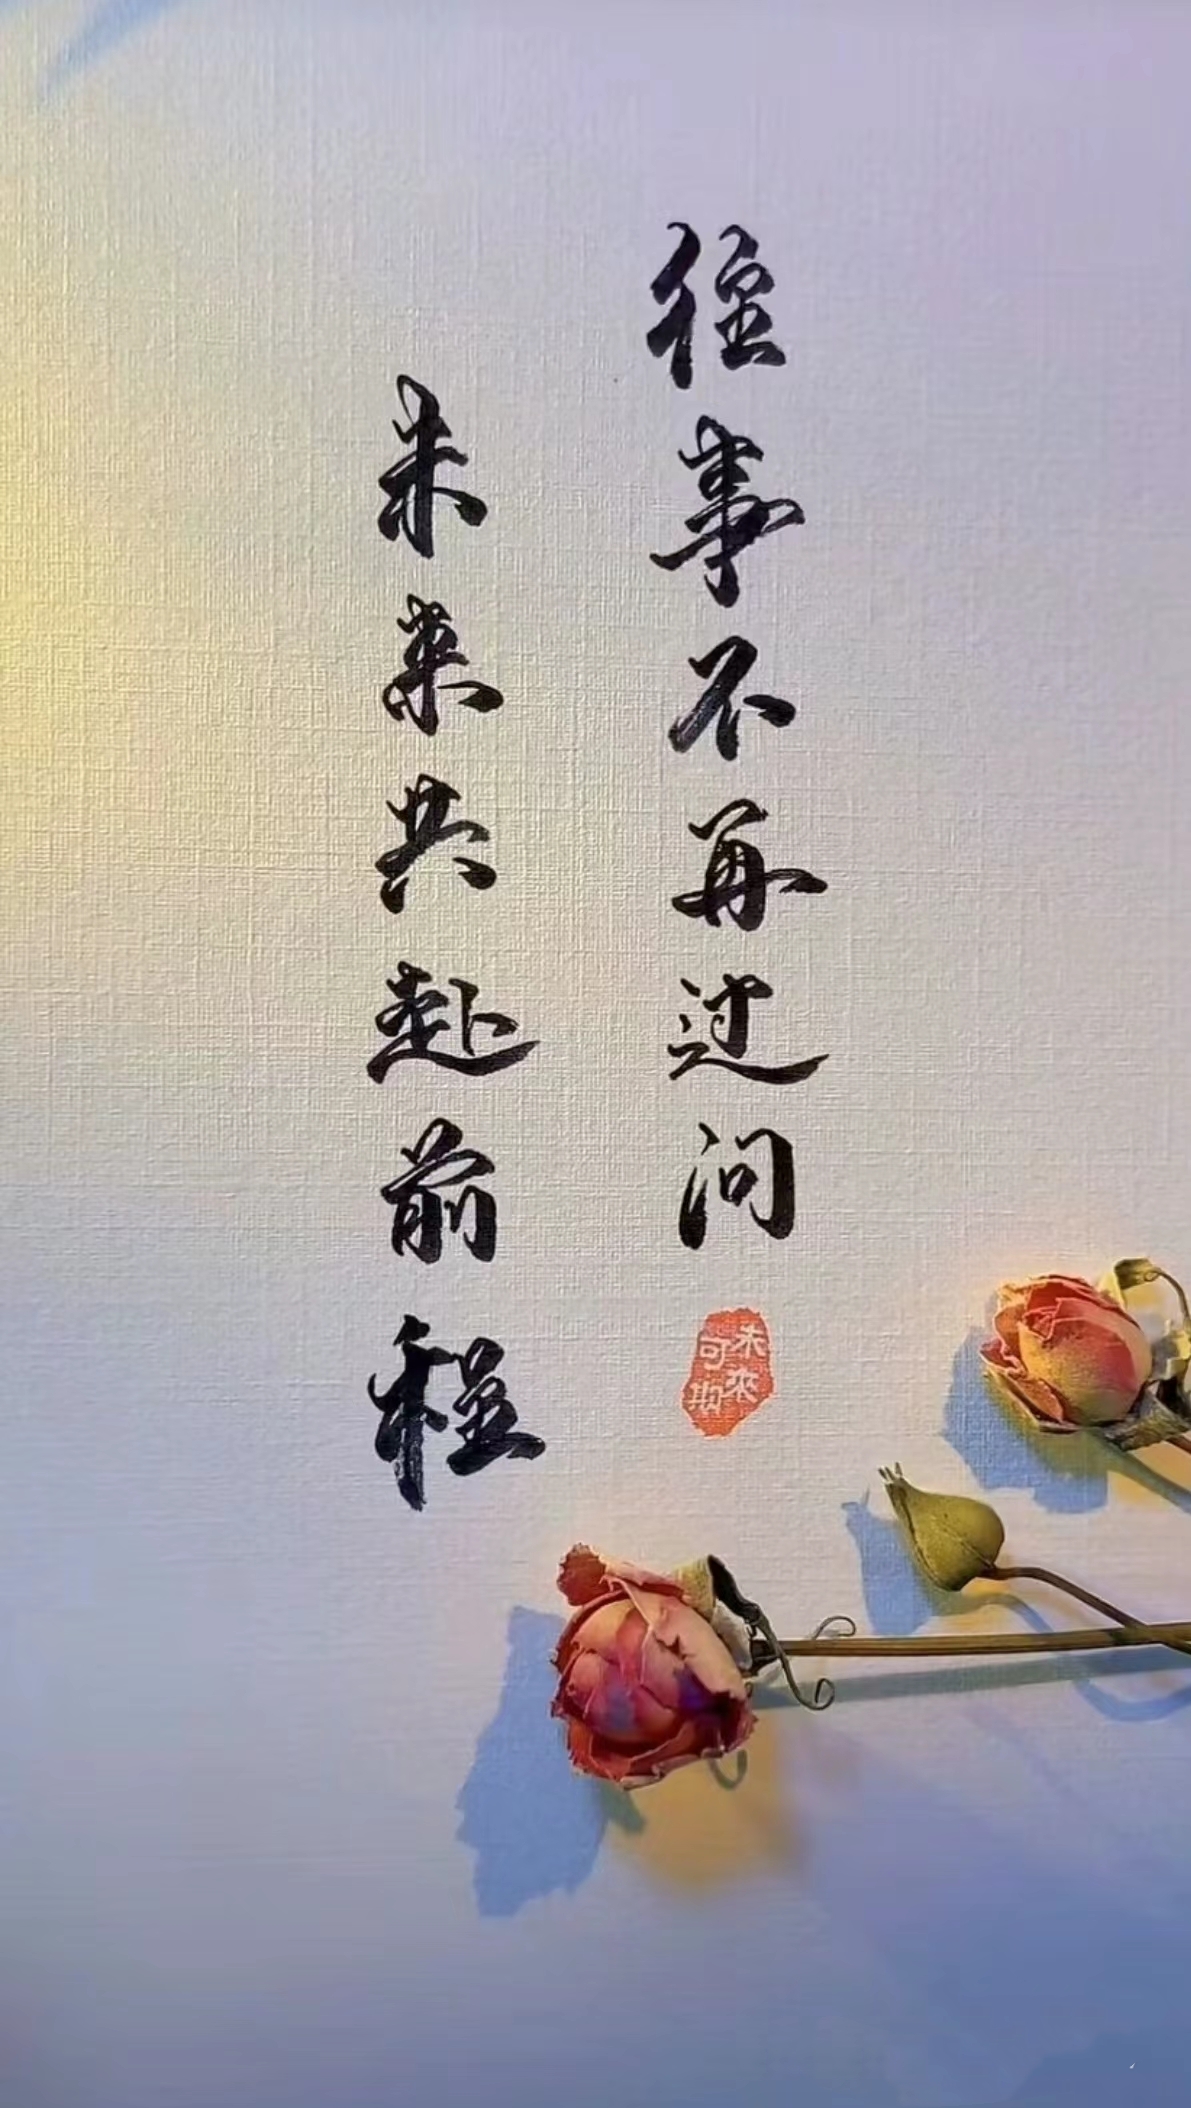 往事不再过问
未来共赴前程
未來
可期